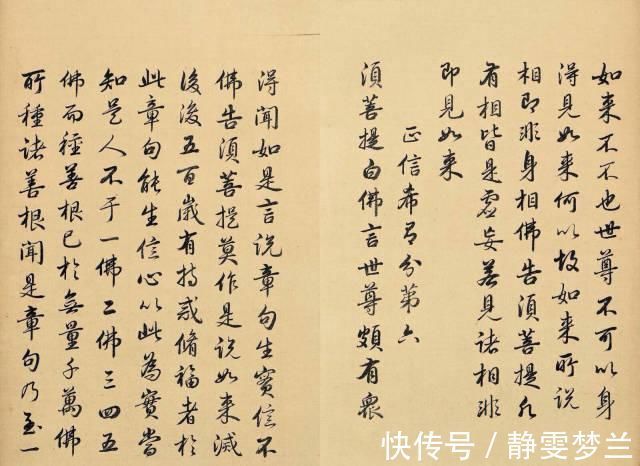 如来不不也世尊不可以身
得見如来何以故如来所說
相即非身相佛告須菩提凡
有相皆是虛妄若見諸相非
即見如来
正信希有分第六
須菩提白佛言世尊頗有衆
得聞如是言說章句生實信不
佛告須菩提莫作是說如来滅
後後五百歲有持戒脩福者於
此章句能生信心以此為實當
知是人不于一佛二佛三四五
佛而種善根已於無量千萬佛
所種諸善根聞是章句乃至一
快传号/静雯梦兰